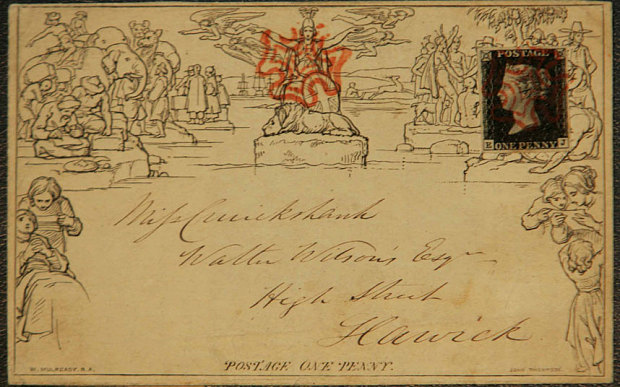 POSTAGE
ONE PENNY
E J
Miss Cruickshank
Walter Wilson's Esqr
High Street
Hawick
POSTAGE ONE PENNY.
W. MULREADY. R.A.
JOHN THOMPSON.